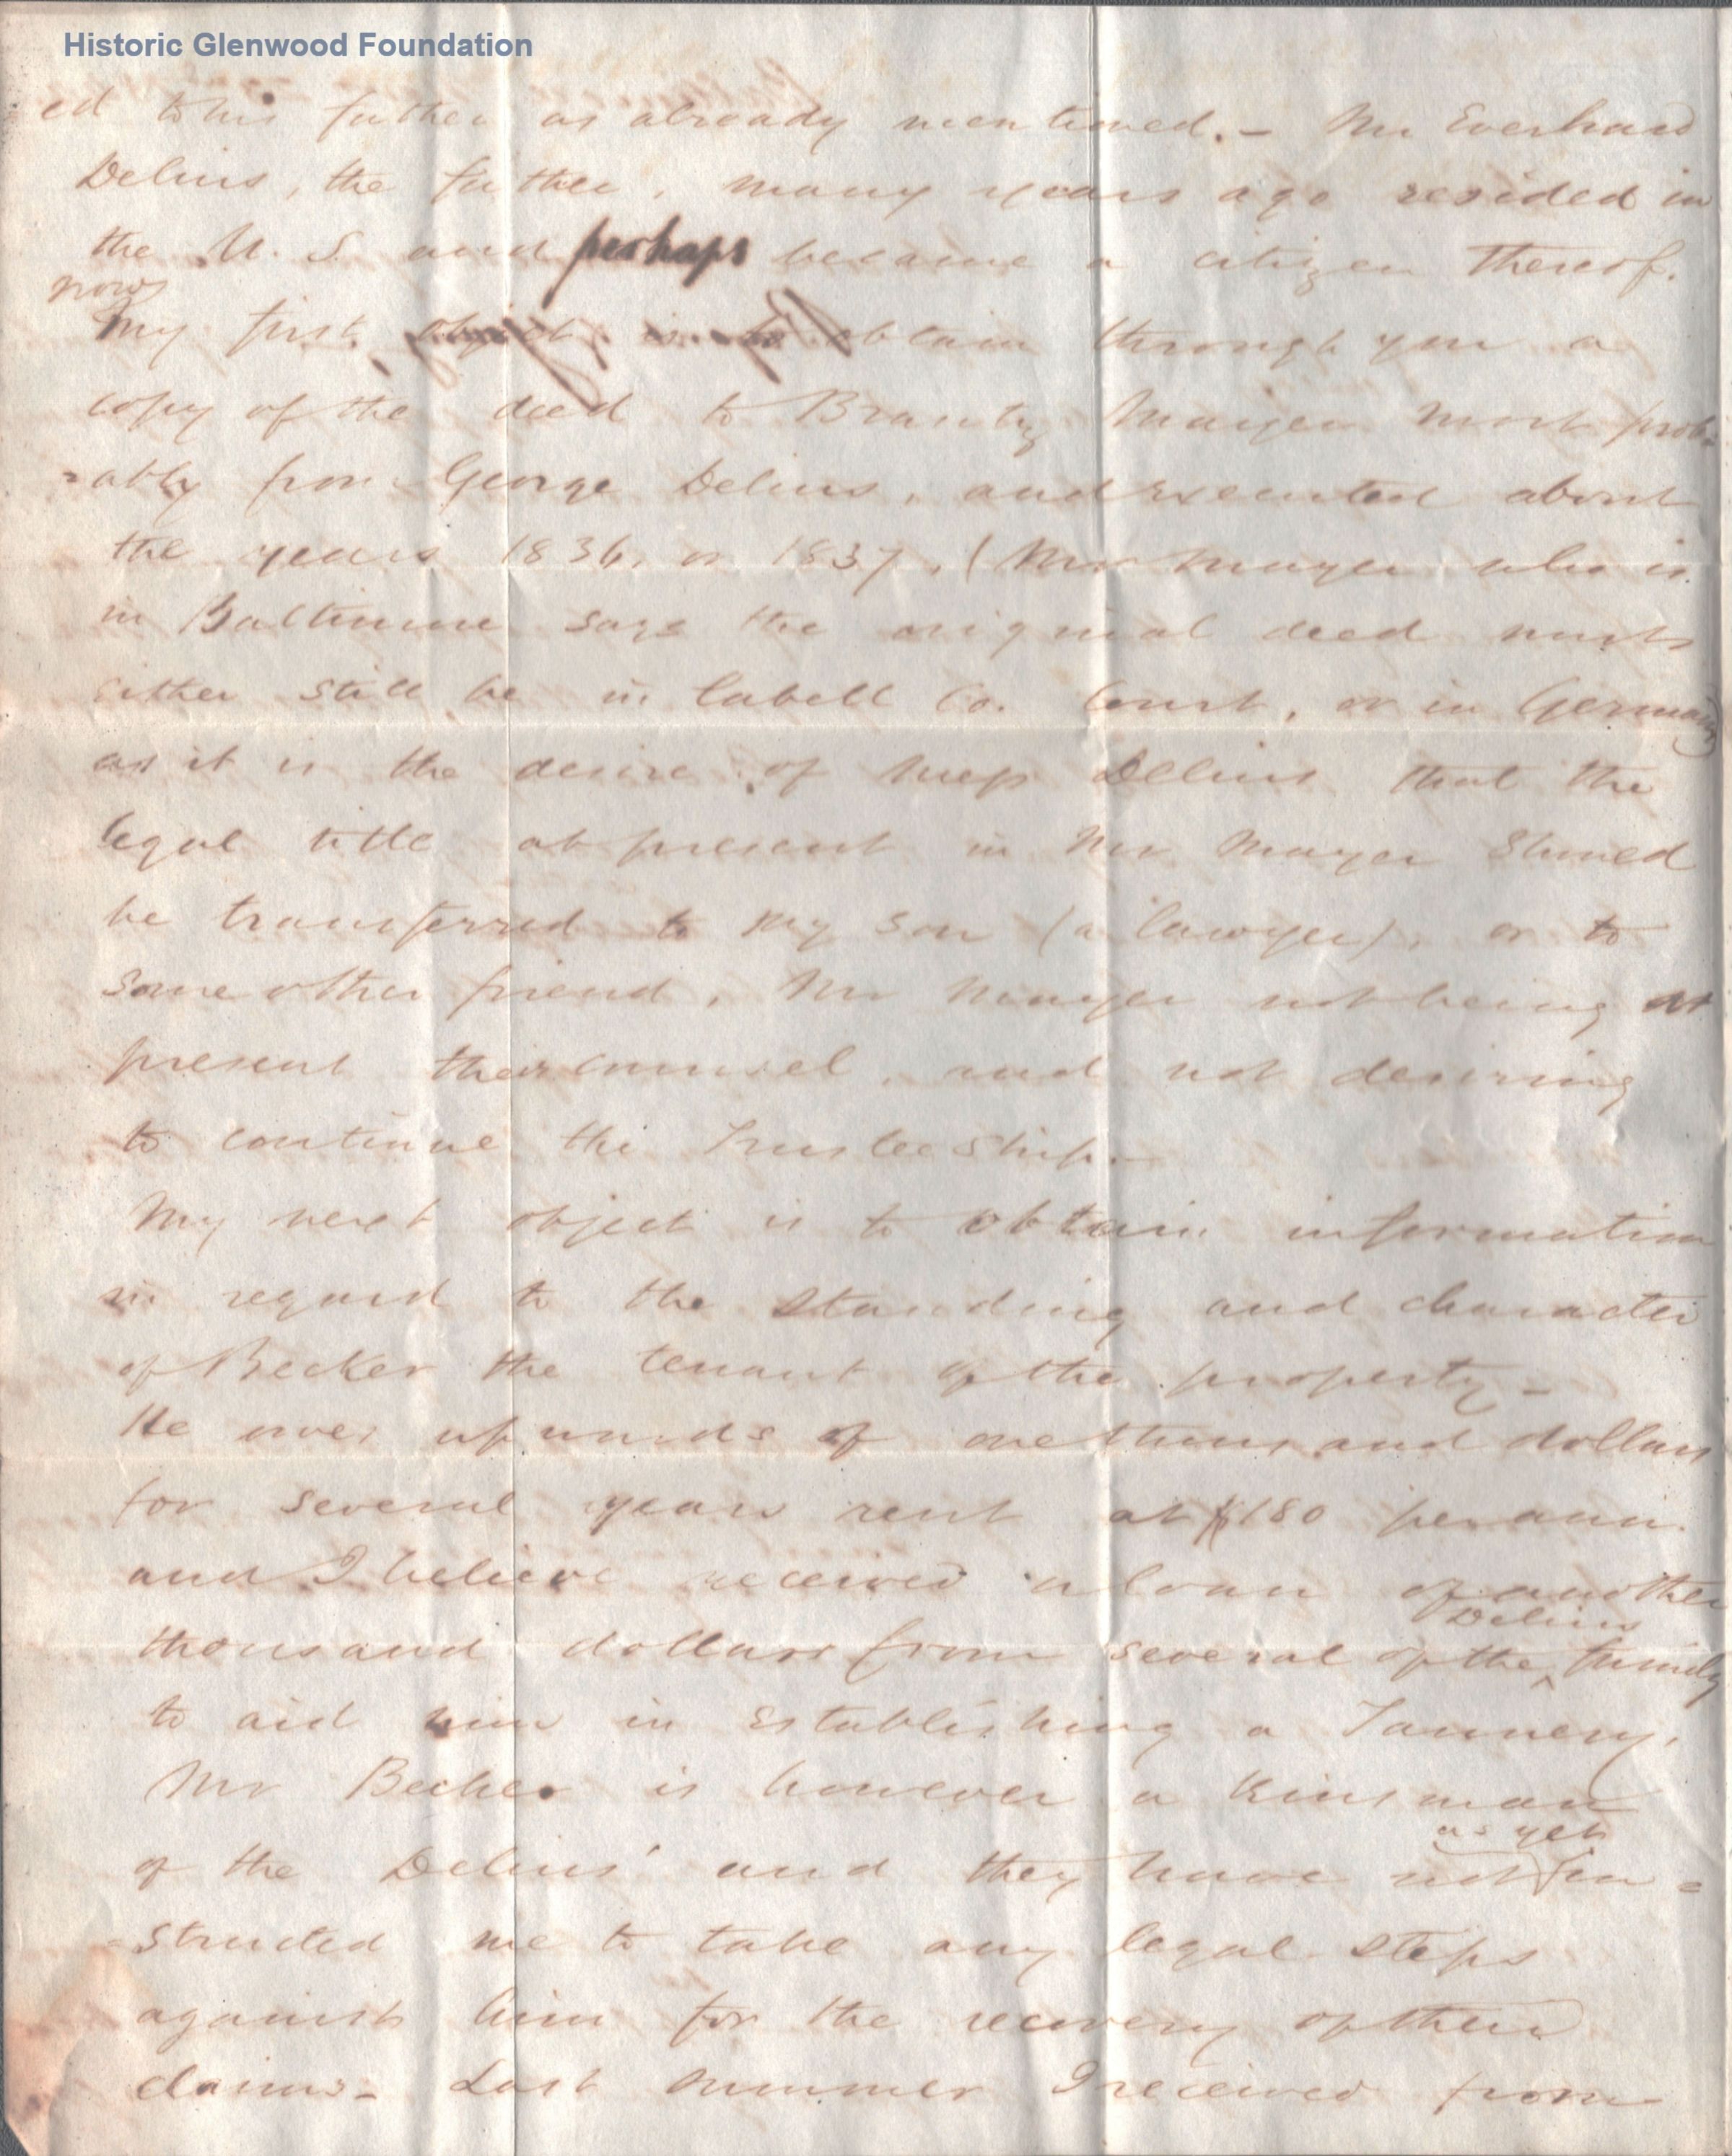 Historic Glenwood Foundation
ed to his father as already mentioned. – Mr Everhard
Delius, the father, many years ago resided in
the U. S. and perhaps became a citizen thereof.
now
My first object is to obtain through you a
copy of the deed to Brantz Mayer most prob=
=ably from George Delius, and executed about
the years 1836, or 1837, (Mr Mayer who is
in Baltimore says the original deed must
either still be in Cabell Co. Court, or in Germany)
as it is the desire of Mess Delius that the
legal title at present in Mr Mayer should
be transferred to my son (a lawyer), or to
some other friend, Mr Mayer not being at
present their counsel, and not desiring
to continue the Trusteeship. –
My next object is to obtain information
in regard to the standing and character
of Becker the tenant of the property –
He owes upwards of one thousand dollars
for several years rent at $180 per ann.
and I believe received a loan of another
Delius
thousand dollars from several of the ^ family
to aid him in establishing a Tannery.
Mr Becker is however a kinsman
as yet
of the Delius' and they have not in=
=structed me to take any legal steps
against him for the recovery of their
claims – Last summer I received from